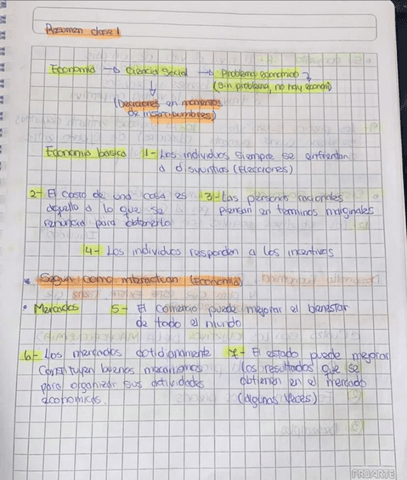 Resumen clase 1
Economía → Ciencia Social → Problema económico
(Sin problema, no hay econom)
(Decisiones en momentos
de incertidumbres)
Economia basica 1- Los individuos siempre se enfrentan
a disyuntivas (Elecciones)
2- El costo de una cosa es
aquello a lo que se
renuncia para obtenerlo
3- Las personas racionales
piensan en terminos marginales
4- Los individuos responden a los incentivos
* Segun: como interactuan (Economia)
• Mercados 5- El comercio puede mejorar el bienestar
de todo el mundo
6- Los mercados cotidianamente
constituyen buenos mecanismos
para organizar sus actividades
económicas.
7- El estado puede mejorar
los resultados que se
obtienen en el mercado
(algunas veces)